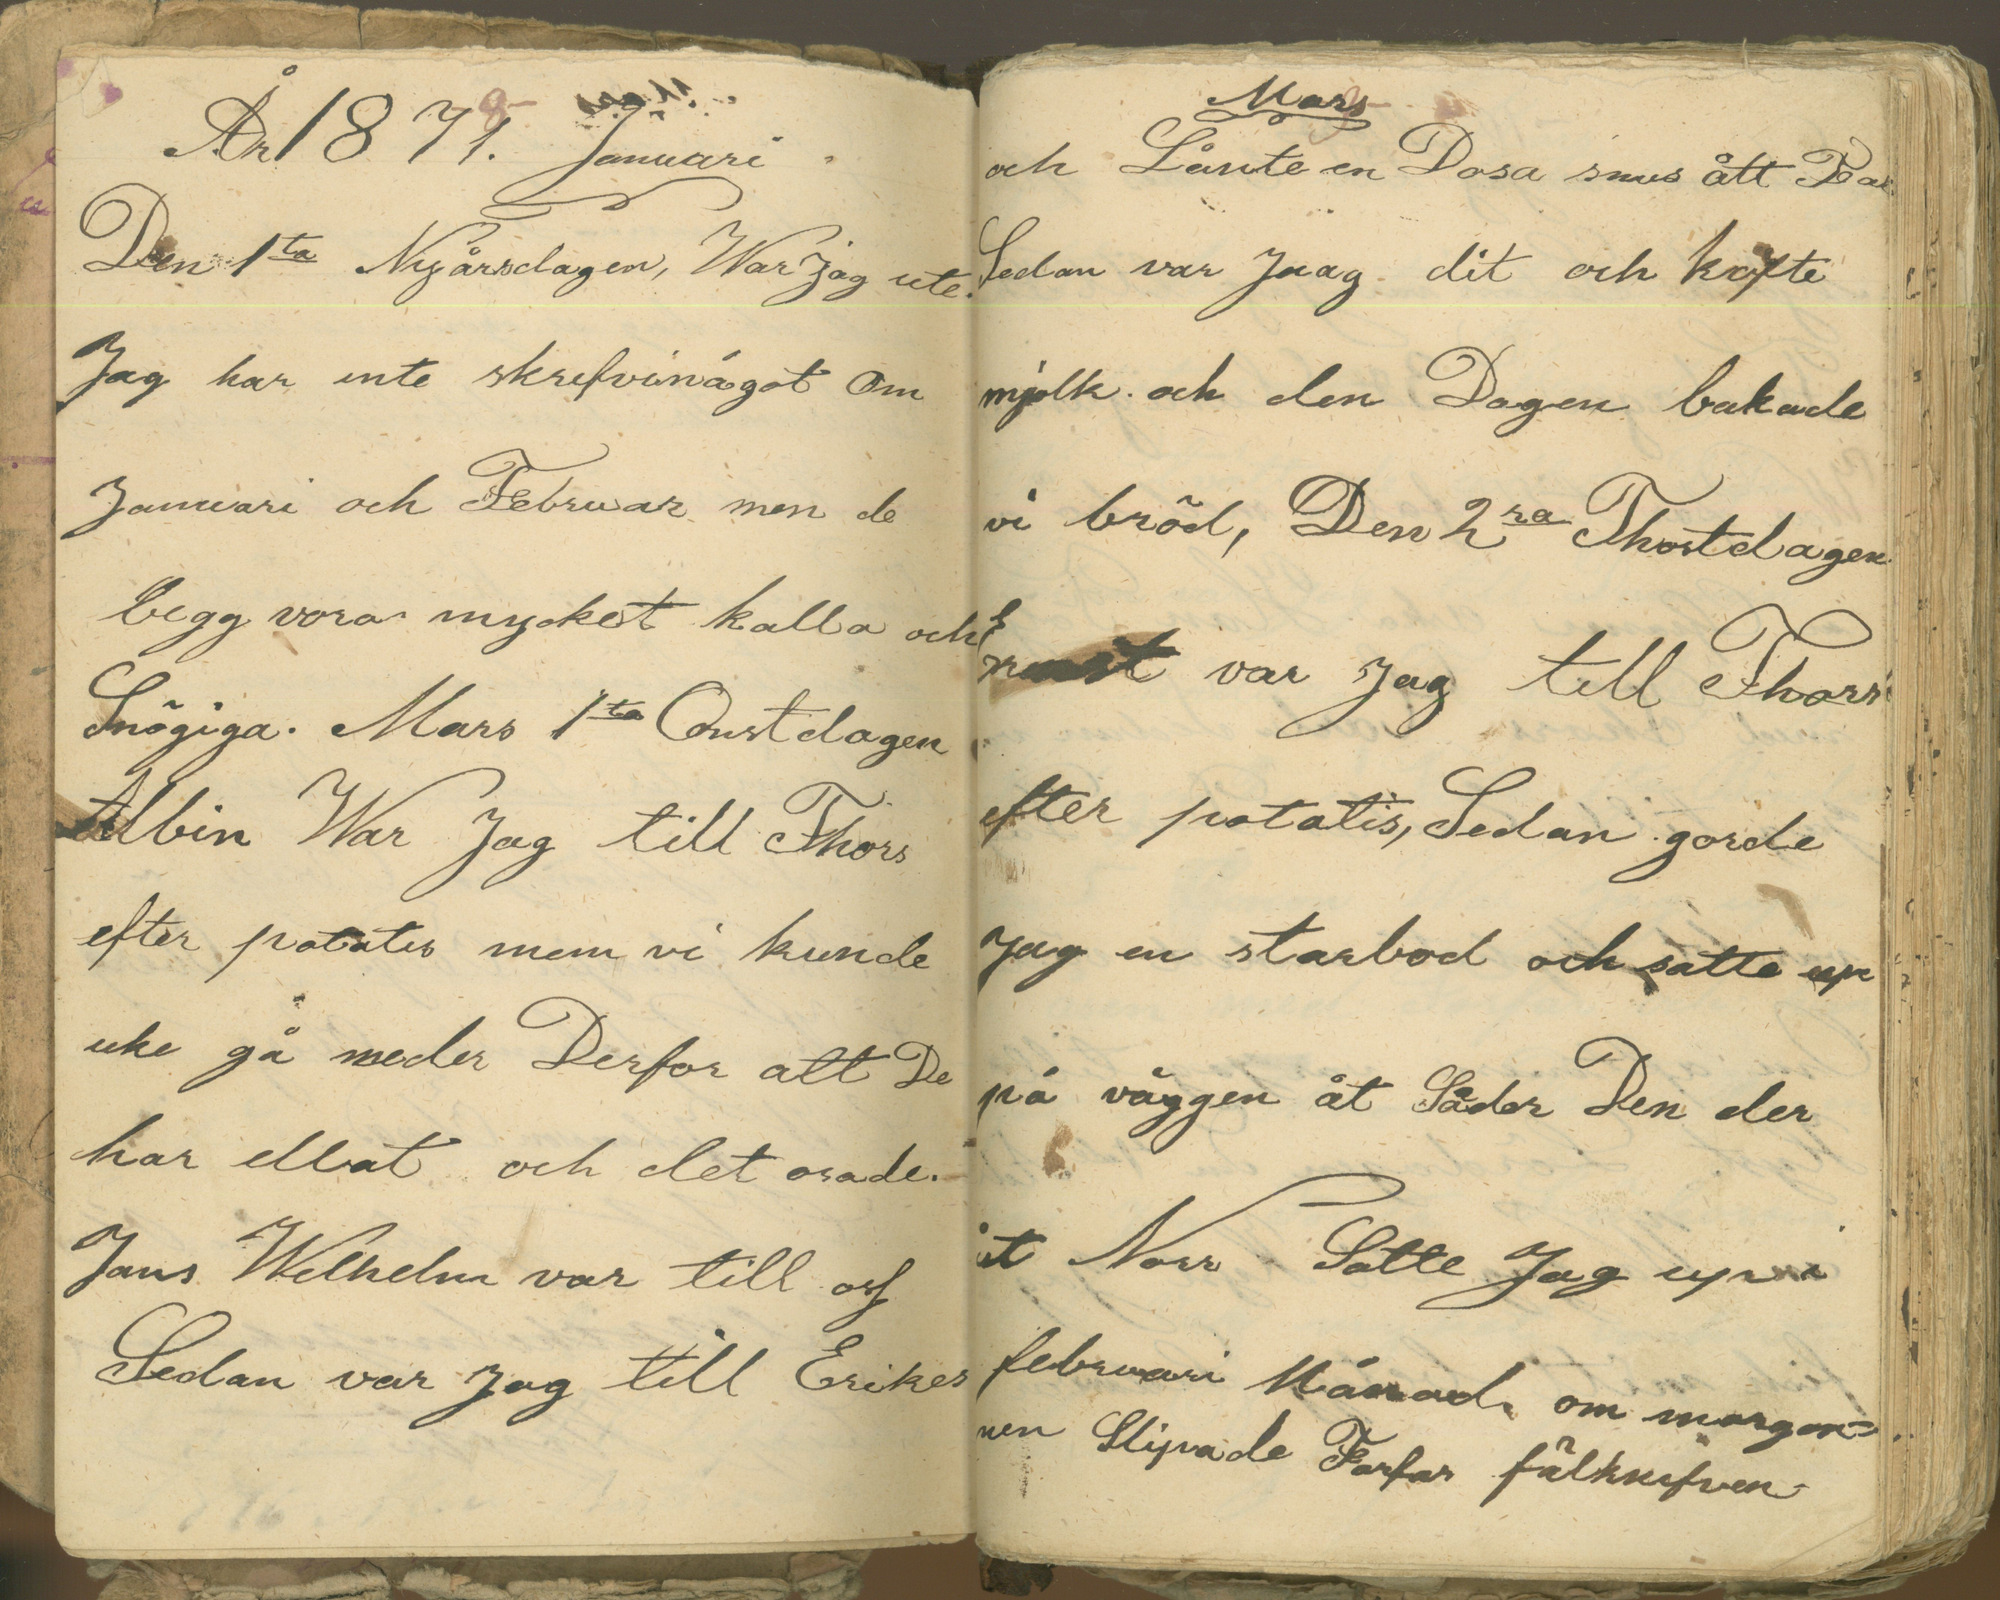 År 1871. Januari
Den 1ta Nyårsdagen, War jag ute.
Jag har inte skrefvinågot om
Januari och Februar men de
begg vora mycket kalla och
Snögiga. Mars 1ta Onstdagen
Albin War Jag till Thors
efter potatis mem vi kunde
icke gå neder Derfor att De
har ellat och det osade.
Jans Welhelm var till
Sedan var Jag till Erikes
Mars
och Lånte en Dosa snus ått Far
Sedan var Jaag dit och køfte
mjølk och den Dagen bakade
vi bröd, Den 2ra Thostdagen
var Jag till Thors
efter potatis, Sedan gorde
Jag en starbod och satte up
på väggen åt Söder Den der
åt Norr Satte Jag up i
februari Månad. om morgon=
nen Slipade Farfar fälknifven